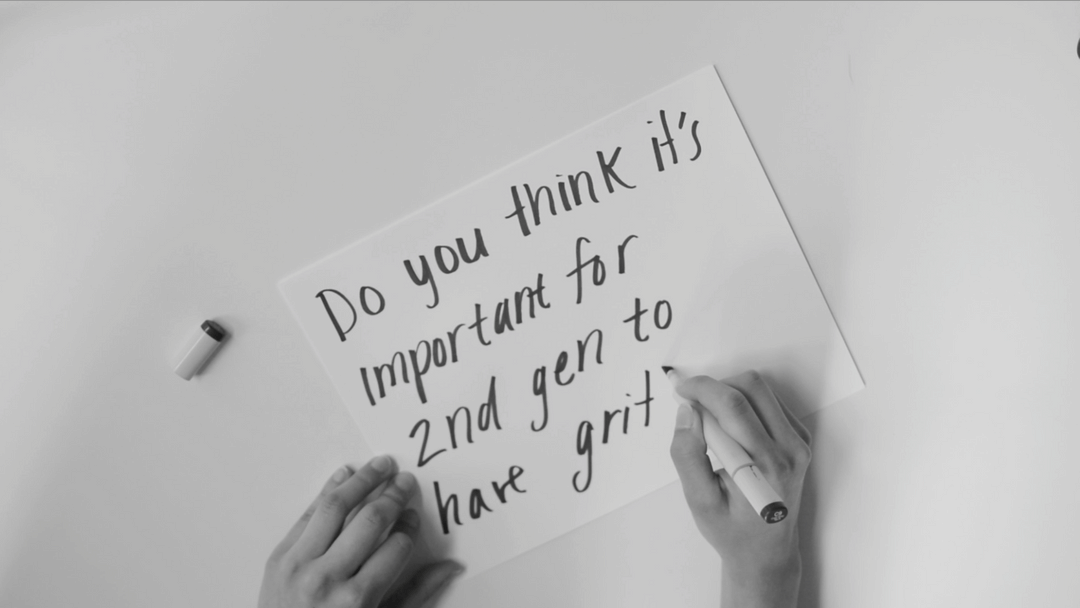 Do you think it's
important for
2nd gen to
have grit